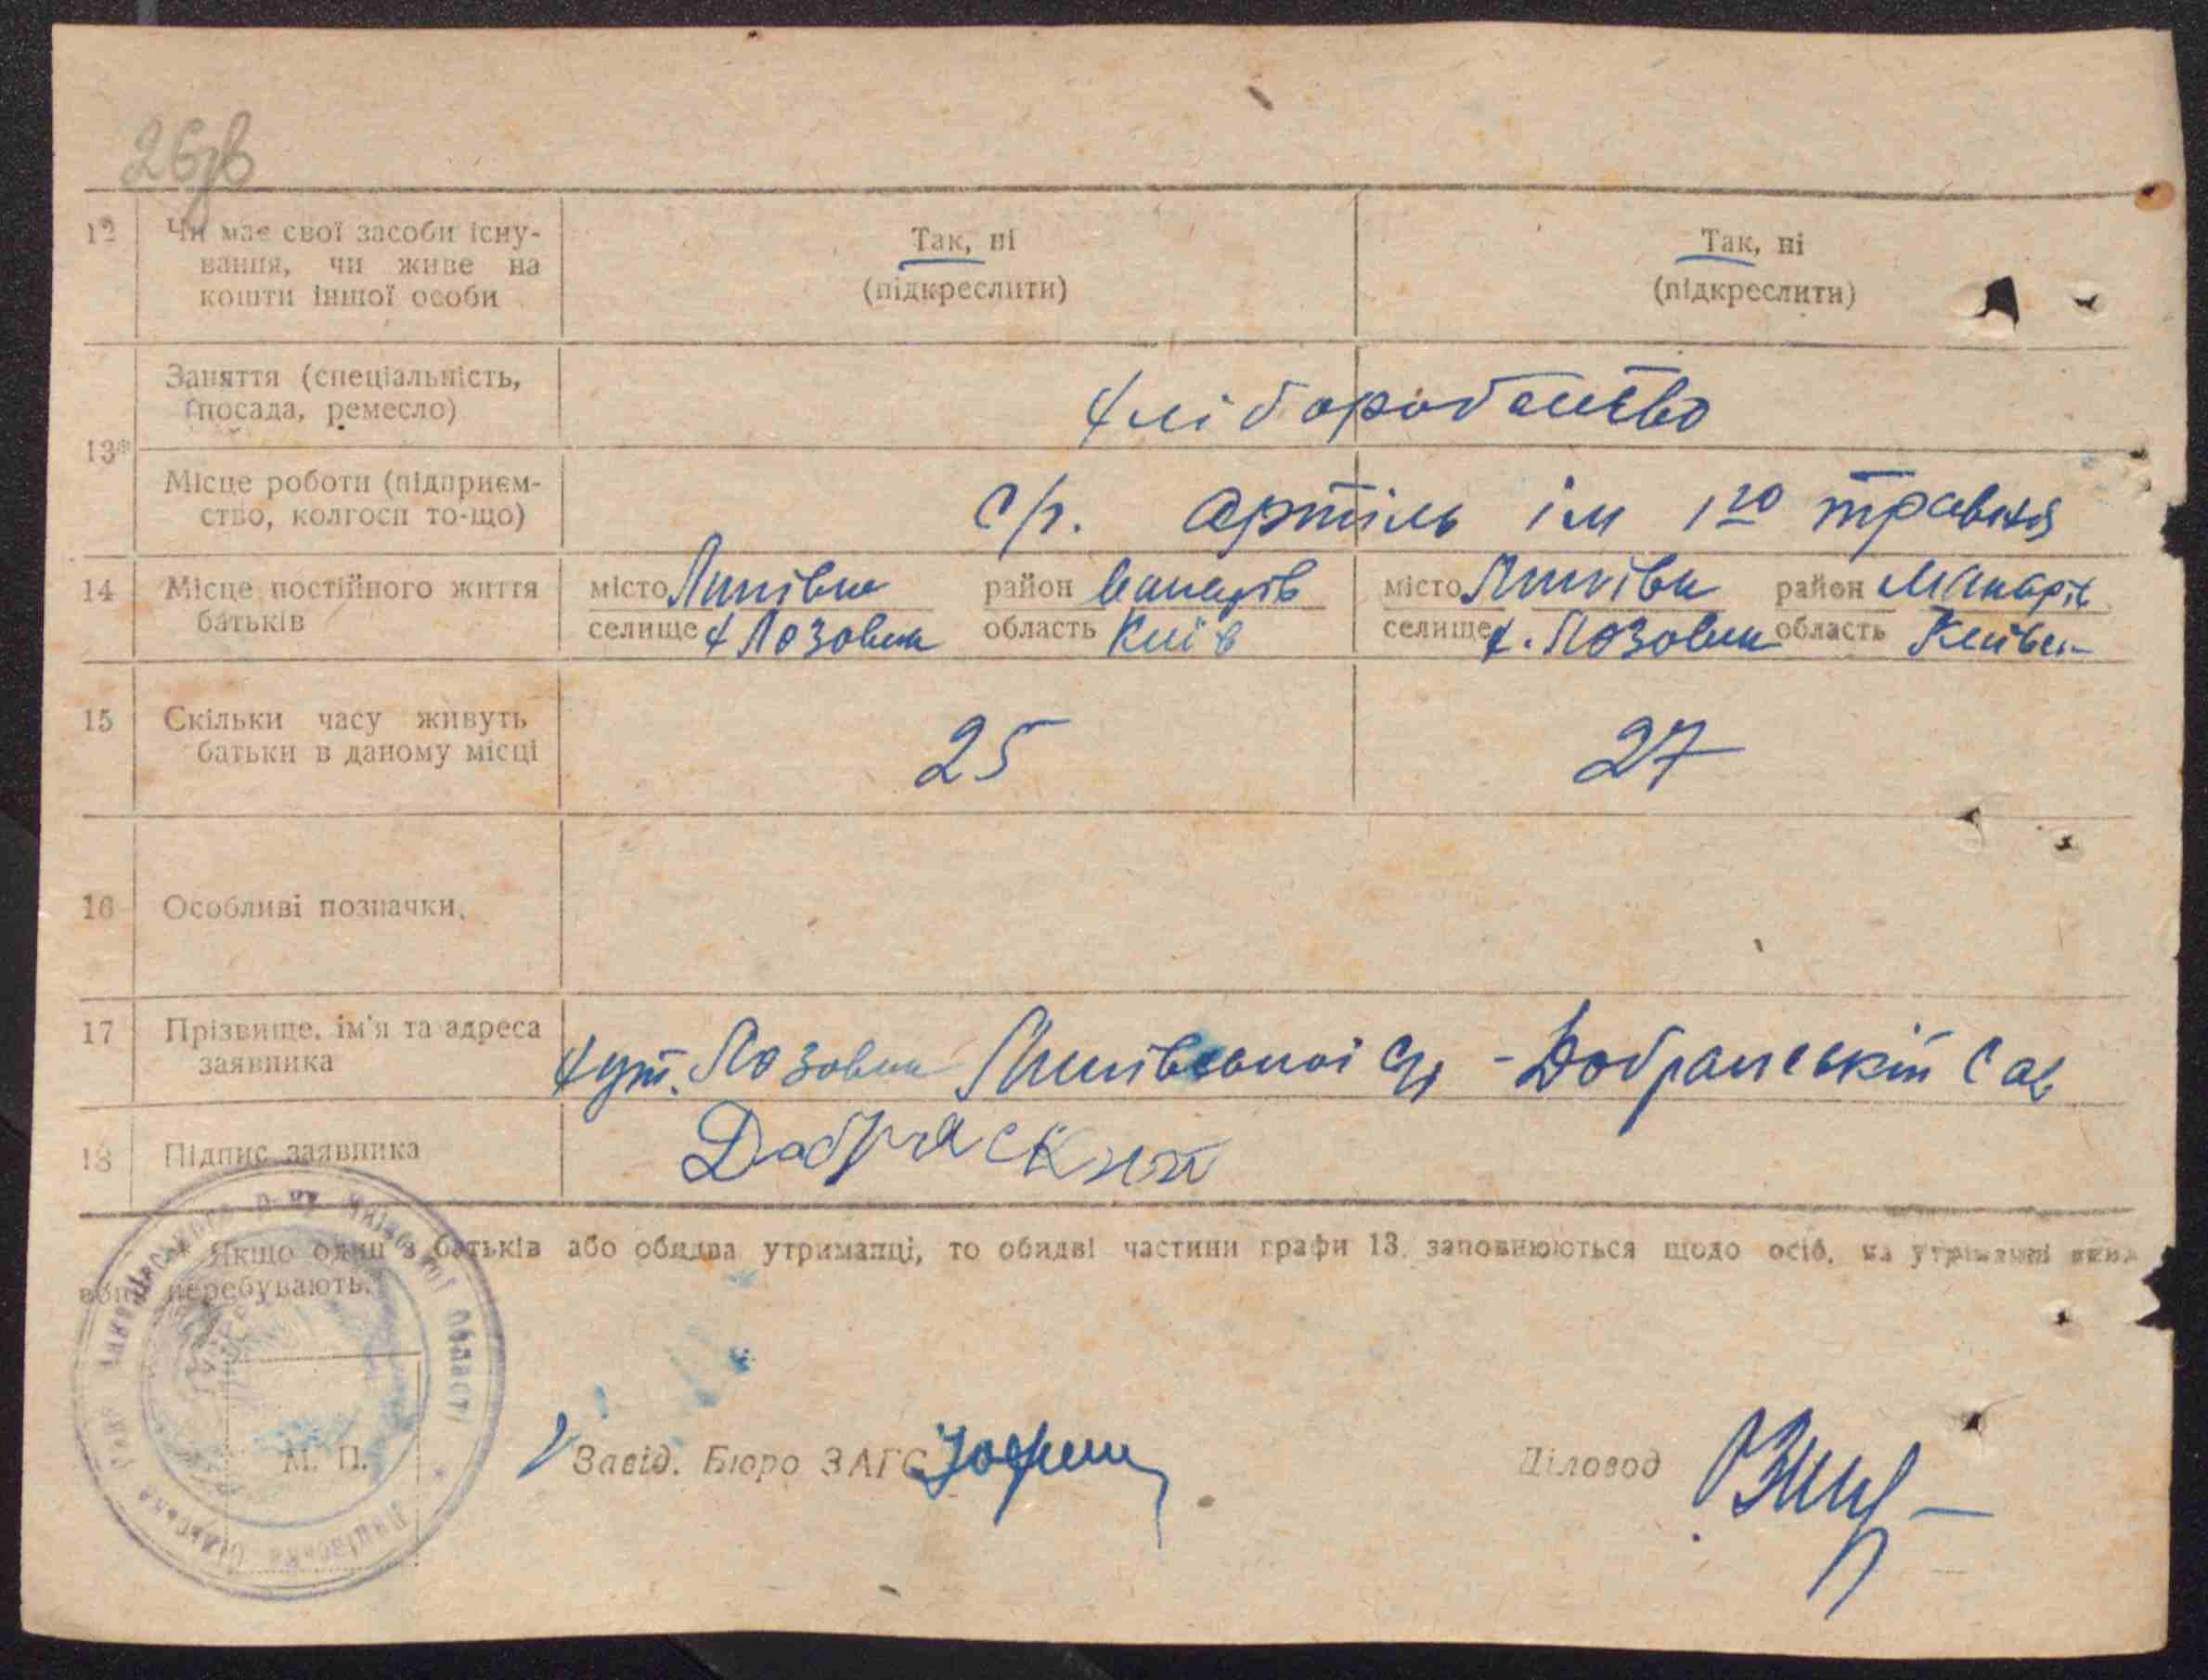 26зв
12 Чи має свої засоби існу-
вання, чи живе на
кошти іншої особи
Так, ні
(підкреслити)
Так, ні
(підкреслити)
13*
Заняття (спеціальність,
посада, ремесло)
хліборобство
Місце роботи (підприєм-
ство, колгосп то-що)
с/г. артіль ім 1го травня
14 Місце постійного життя
батьків
місто Липівка район Макарів
селище х Лозовик область Київ
місто Липівка район Макарів
селище х. Лозовик область Київськ
15 Скільки часу живуть
батьки в даному місці
25
27
16 Особливі позначки.
17 Прізвище, ім'я та адреса
заявника
хут. Лозовик Липівської с/р - Добранський Сав
18 Підпис заявника
* Якщо один з батьків або обидва утриманці, то обидві частини графи 13 заповнюються щодо осіб, на утриманні яких
вони перебувають.
М. П.
Завід. Бюро ЗАГС
Діловод